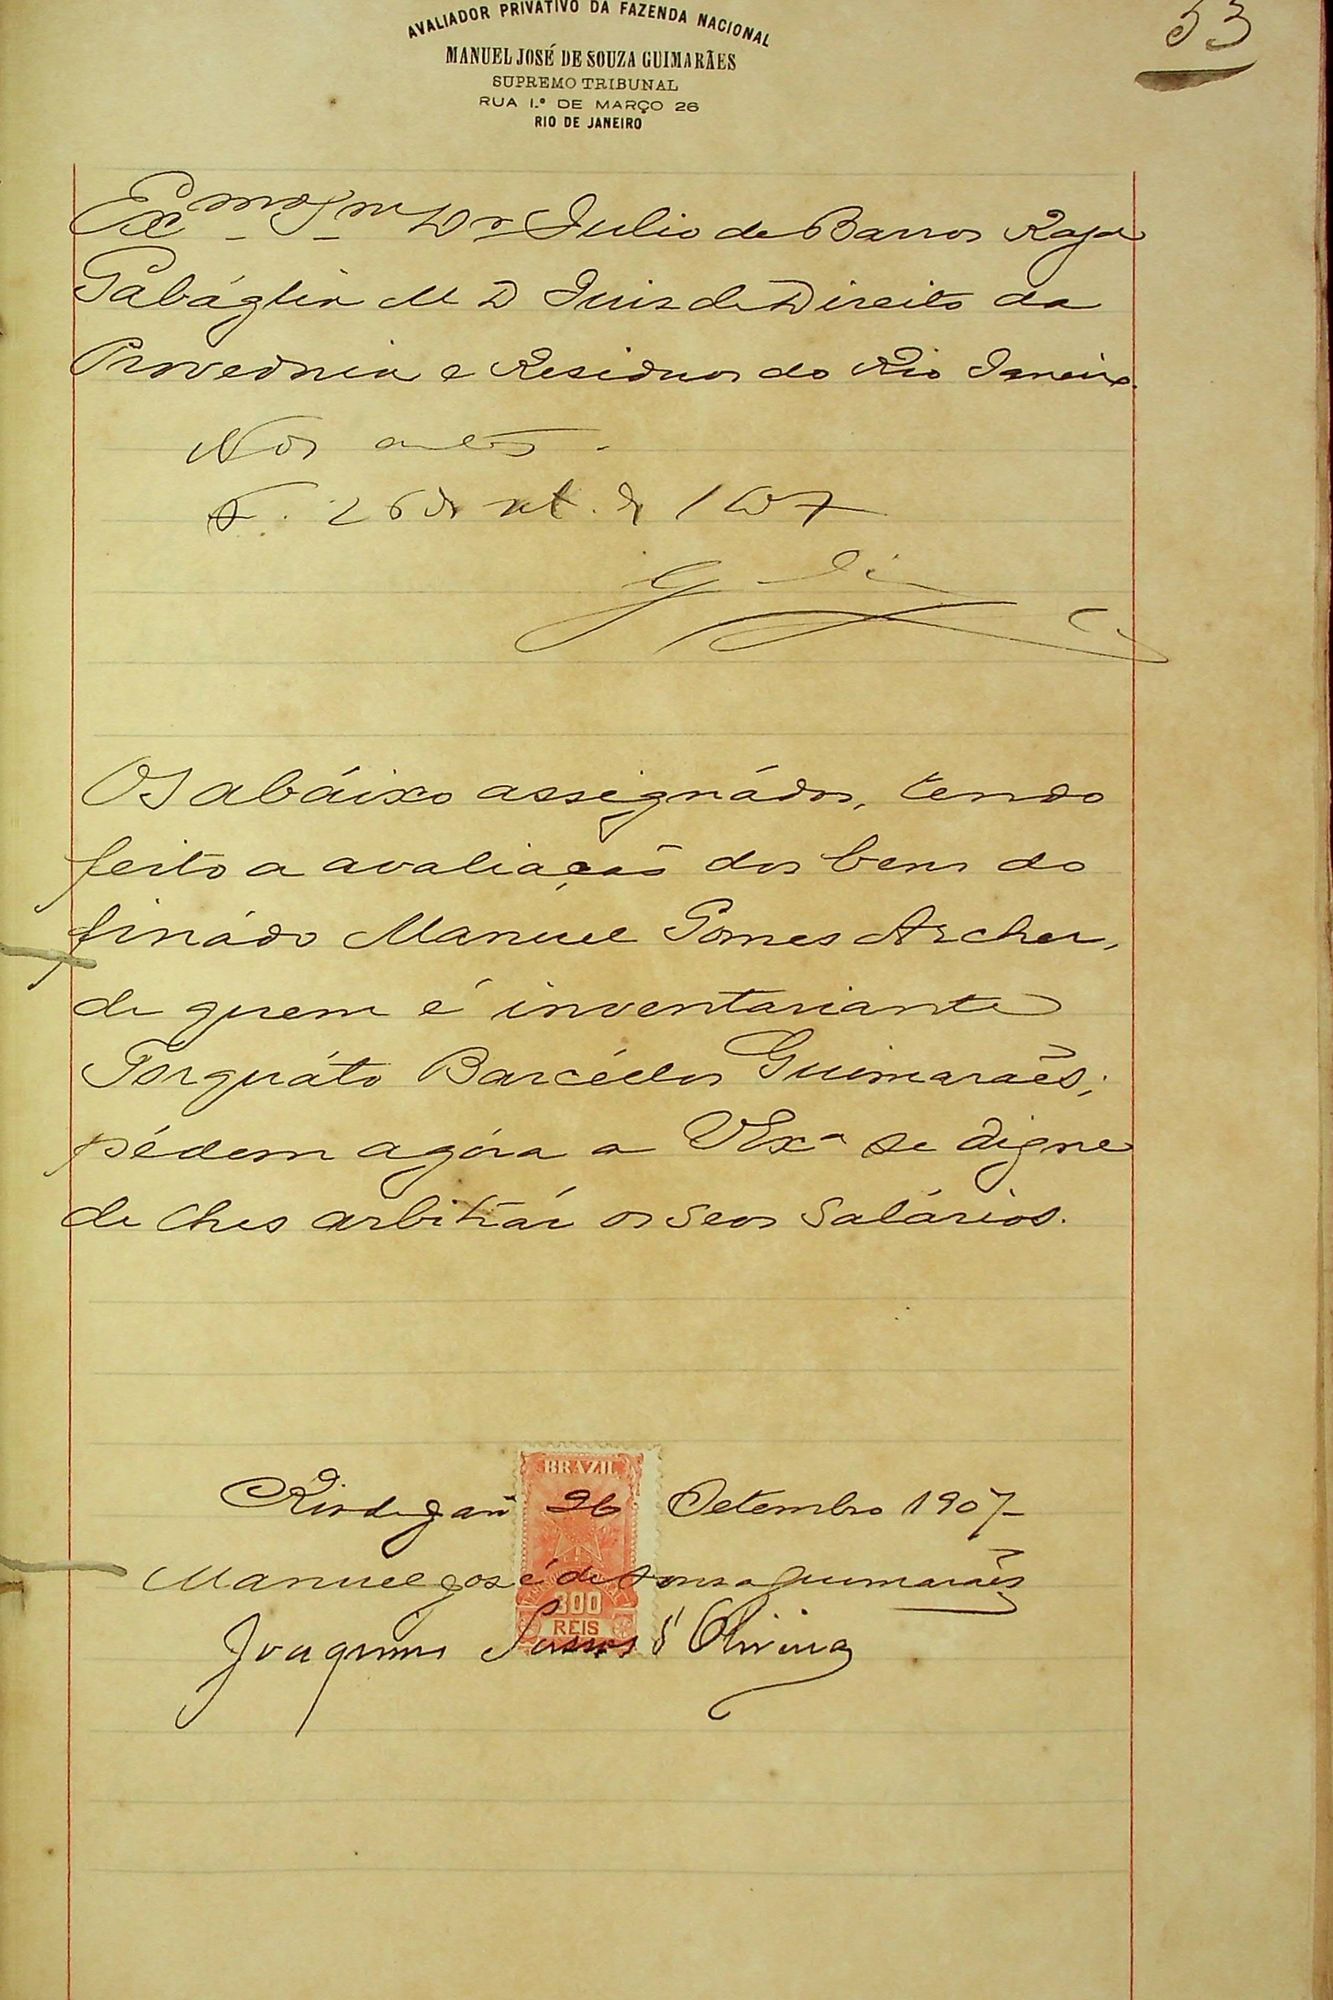 53
AVALIADOR PRIVATIVO DA FAZENDA NACIONAL
MANUEL JOSÉ DE SOUZA GUIMARÃES
SUPREMO TRIBUNAL
RUA 1.º DE MARÇO 26
RIO DE JANEIRO
Ex.mo Snr Dr Julio de Barros Raja
Gabáglia M D Juiz de Direito da
Provedoria e Residuos do Rio Janeiro.
Nos autos.
26 de set. de 1907
Os abáixo assignádos, tendo
feito a avaliação dos bens do
fináddo Manuel Gomes Archer,
de quem é inventariante
Torquáto Barcéllos Guimarães;
pédem agóra a VExa se digne
de lhes arbitrár os seos salários.
Rio de Janº 26 Setembro 1907
BRAZIL
300
REIS
Manuel José de Souza Guimarães
Joaquim Passos d'Oliveira